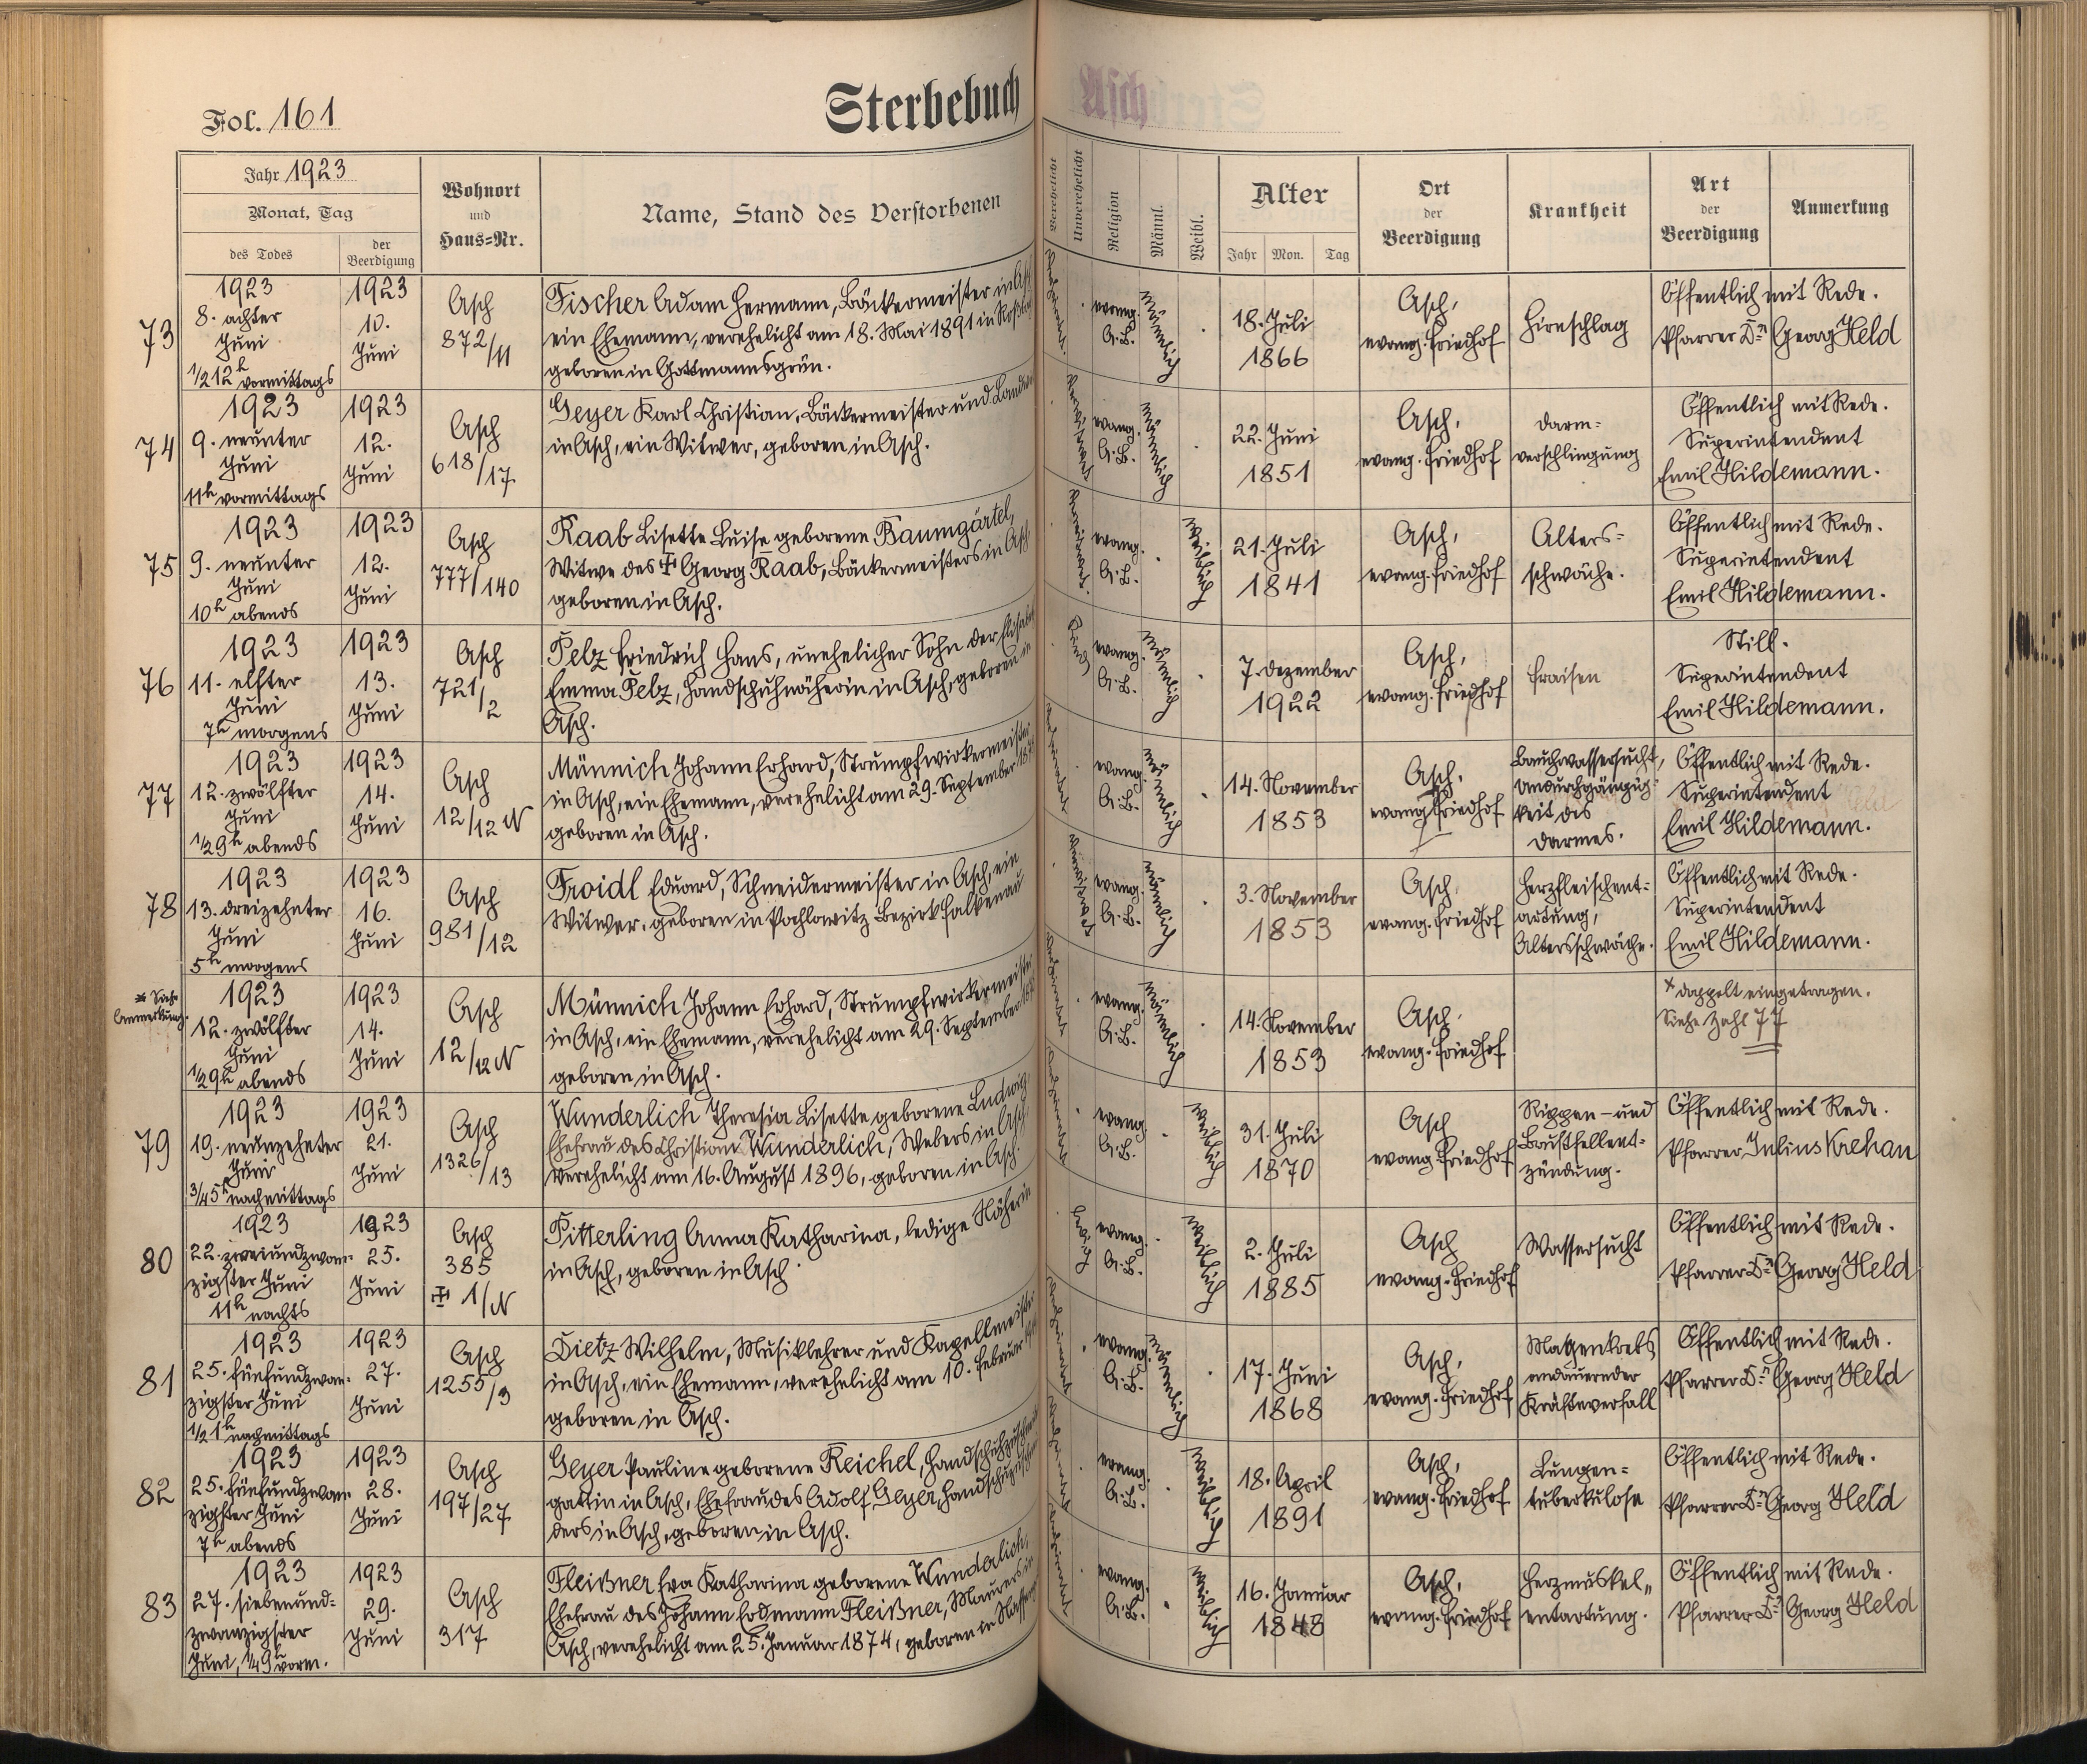 Fol. 161
Sterbebuch
Asch
Jahr 1923
Monat, Tag
des Todes
der Beerdigung
Wohnort
und
Haus=Nr.
Name, Stand des Verstorbenen
Verehelicht
Unverehelicht
Religion
Männl.
Weibl.
Alter
Jahr
Mon.
Tag
Ort
der
Beerdigung
Krankheit
Art
der
Beerdigung
Anmerkung
73
1923
8. achter
Juni
1/2 12h vormittags
1923
10.
Juni
Asch
872/11
Fischer Adam Hermann, Bäckermeister in
ein Ehemann, verehelicht am 18. Mai 1891 in
geboren in Gottmannsgrün.
evang.
A.B.
männlich
18. Juli
1866
Asch,
evang. Friedhof
Hirnschlag
Öffentlich mit Rede.
Pfarrer Dr. Georg Held
74
1923
9. neunter
Juni
11h vormittags
1923
12.
Juni
Asch
618/17
Geyer Karl Christian, Bäckermeister und
in Asch, ein Witwer, geboren in Asch.
evang.
A.B.
männlich
22. Juni
1851
Asch,
evang. Friedhof
Darm=
verschlingung
Öffentlich mit Rede.
Superintendent
Emil Hildemann.
75
1923
9. neunter
Juni
10h abends
1923
12.
Juni
Asch
777/140
Raab Lisette Luise geborene Baumgärtel,
Witwe des ✠ Georg Raab, Bäckermeisters in Asch
geboren in Asch.
evang.
A.B.
weiblich
21. Juli
1841
Asch,
evang. Friedhof
Alters=
schwäche.
Öffentlich mit Rede.
Superintendent
Emil Hildemann.
76
1923
11. elfter
Juni
7h morgens
1923
13.
Juni
Asch
721/2
Pelz Friedrich Hans, unehelicher Sohn der
Emma Pelz, Handschuhnäherin in Asch, geboren in
Asch.
Kind
evang.
A.B.
männlich
7. Dezember
1922
Asch,
evang. Friedhof
Fraisen
Still.
Superintendent
Emil Hildemann.
77
1923
12. zwölfter
Juni
1/2 9h abends
1923
14.
Juni
Asch
12/12 N
Münnich Johann Erhard, Strumpfwirkermeister
in Asch, ein Ehemann, verehelicht am 29. September
geboren in Asch.
evang.
A.B.
männlich
14. November
1853
Asch,
evang. Friedhof
Bauchwassersucht,
Undurchgängig=
keit des
Darmes.
Öffentlich mit Rede.
Superintendent
Emil Hildemann.
78
1923
13. dreizehnter
Juni
5h morgens
1923
16.
Juni
Asch
981/12
Froidl Eduard, Schneidermeister in Asch, ein
Witwer, geboren in Pochlowitz Bezirk Falkenau
evang.
A.B.
männlich
3. November
1853
Asch,
evang. Friedhof
Herzfleischent=
artung,
Altersschwäche.
Öffentlich mit Rede.
Superintendent
Emil Hildemann.
* Siehe
Anmerkung.
1923
12. zwölfter
Juni
1/2 9h abends
1923
14.
Juni
Asch
12/12 N
Münnich Johann Erhard, Strumpfwirkermeister
in Asch, ein Ehemann, verehelicht am 29. September
geboren in Asch.
evang.
A.B.
männlich
14. November
1853
Asch.
evang. Friedhof
* doppelt eingetragen.
Siehe Zahl 77
79
1923
19. neunzehnter
Juni
3/4 5h nachmittags
1923
21.
Juni
Asch
1326/13
Wunderlich Theresia Lisette geborene Ludwig,
Ehefrau des Christian Wunderlich, Webers in Asch
verehelicht am 16. August 1896, geboren in Asch.
evang.
A.B.
weiblich
31. Juli
1870
Asch
evang. Friedhof
Rippen- und
Brustfellent=
zündung.
Öffentlich mit Rede.
Pfarrer Julius Krehan
80
1923
22. zweiundzwan=
zigster Juni
11h nachts
1923
25.
Juni
Asch
385
✠ 1/N
Pitterling Anna Katharina, ledige Näherin
in Asch, geboren in Asch.
ledig
evang.
A.B.
weiblich
2. Juli
1885
Asch
evang. Friedhof
Wassersucht
Öffentlich mit Rede.
Pfarrer Dr. Georg Held
81
1923
25. fünfundzwan=
zigster Juni
1/2 1h nachmittags
1923
27.
Juni
Asch
1255/3
Dietz Wilhelm, Musiklehrer und Kapellmeister
in Asch, ein Ehemann, verehelicht am 10. Februar
geboren in Asch.
evang.
A.B.
männlich
17. Juni
1868
Asch,
evang. Friedhof
Magenkrebs
andauernder
Kräfteverfall
Öffentlich mit Rede.
Pfarrer Dr. Georg Held
82
1923
25. fünfundzwan=
zigster Juni
7h abends
1923
28.
Juni
Asch
197/27
Geyer Pauline geborene Reichel,
gattin in Asch, Ehefrau des Adolf Geyer,
ders in Asch, geboren in Asch.
evang.
A.B.
weiblich
18. April
1891
Asch,
evang. Friedhof
Lungen=
tuberkulose
Öffentlich mit Rede.
Pfarrer Dr. Georg Held
83
1923
27. siebenund=
zwanzigster
Juni, 1/4 9h vorm.
1923
29.
Juni
Asch
317
Fleißner Eva Katharina geborene Wunderlich,
Ehefrau des Johann Erdmann Fleißner, Maurers in
Asch, verehelicht am 25. Januar 1874, geboren in
evang.
A.B.
weiblich
16. Januar
1848
Asch,
evang. Friedhof
Herzmuskel„
entartung.
Öffentlich mit Rede.
Pfarrer Dr. Georg Held